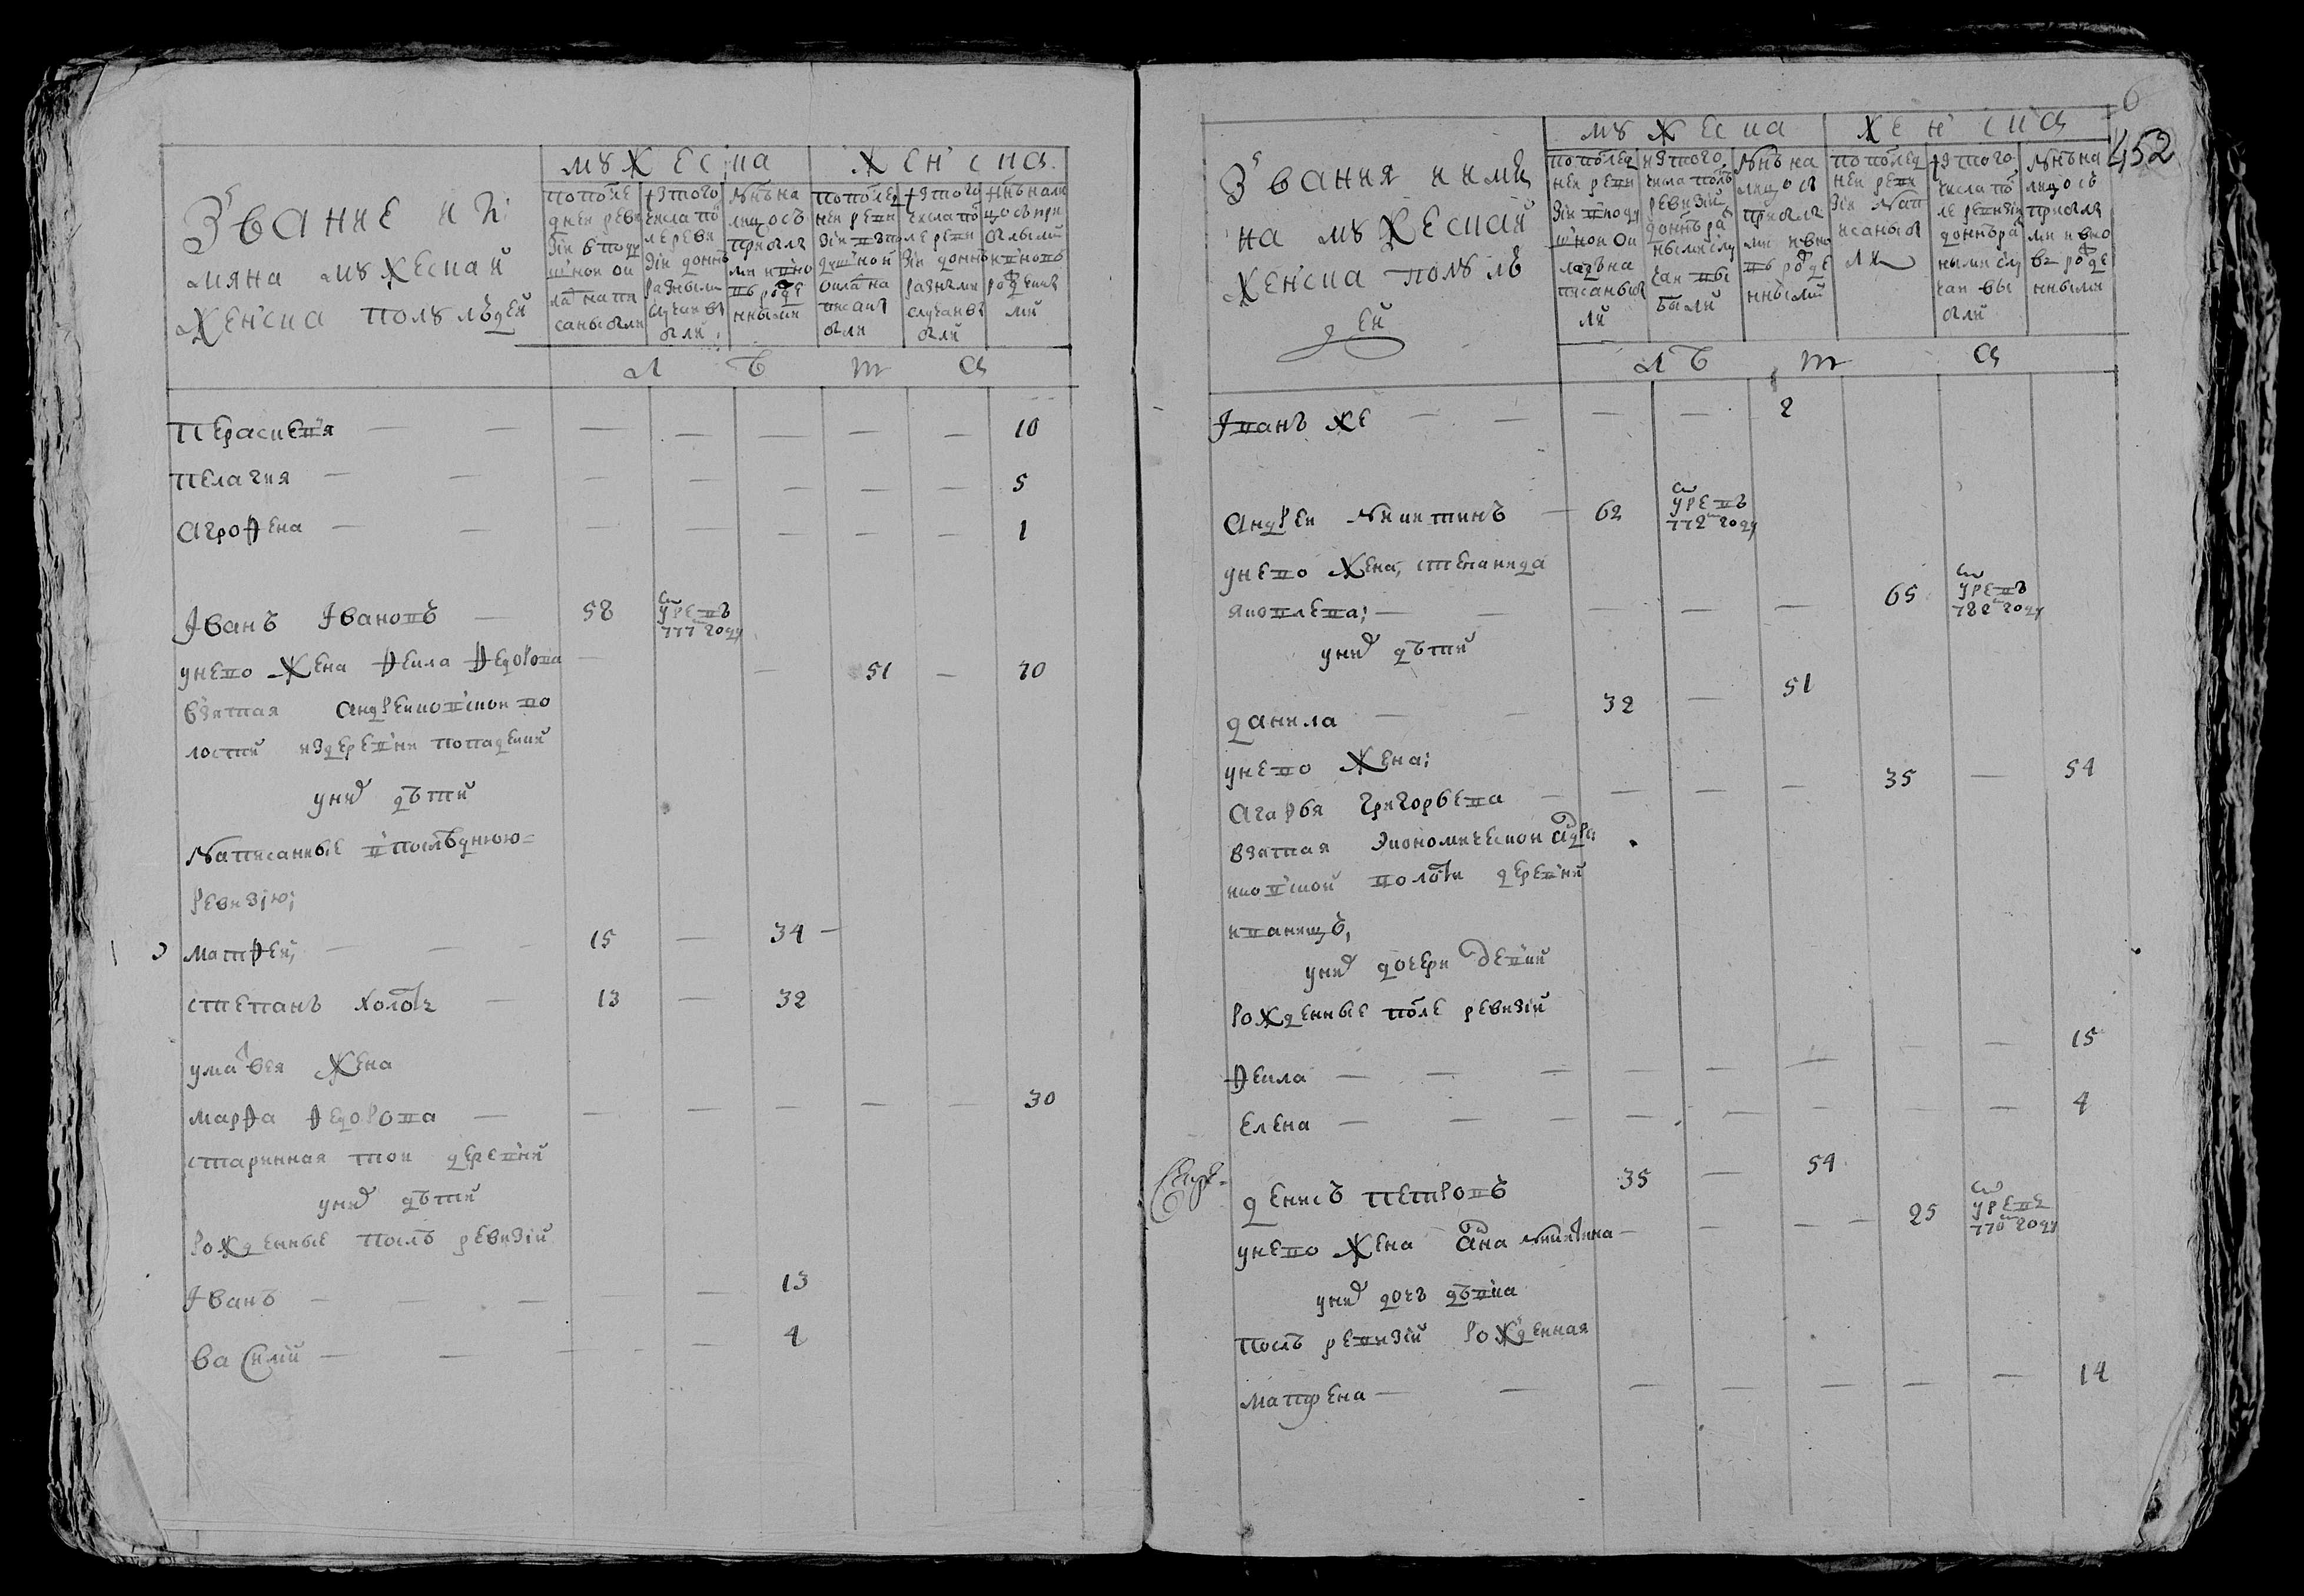 Звание и и
мяна мужеска й
женска полу людей
мужеска
женска
попосле
дней реви
зіи в поду
шной ок
лад напи
саны были
изтого
числа по
сле реви
зіи до нне
разными
случаи вы
были
ныне на
лицо съ
прибылы
ми и вно
въ рожде
нными
по послед
ней реви
зіи въ по
душной
оклад на
писаны
были
изтого
числа по
сле реви
зіи до нне
разными
случаи вы
были
ныне на ли
цо съ при
былыми
и вновь
рожденны
ми
л е т а
Перасковия — — — — — — — 10
Пелагия — — — — — — — 5
Агрофена — — — — — — — 1
Іванъ Івановъ — 58 умре въ 777 году
у него жена Фекла Федорова — — 51 — 70
взятая Андреиковской во
лости из деревни
у них дѣти
Написанные в последнюю
ревизію;
Матфей, — — — 15 — 34 —
Степанъ холостъ — 13 — 32
у Матвея жена
Марфа Федорова — — — — — — 30
старинная той деревни
у них дѣти
рожденные послѣ ревизіи
Іванъ — — — — — 13
Василий — — — — — 4
6
452
Звания и имя
на мужескай
женска полу лю
дей
мужеска
женска
по послед
ней реви
зіи в поду
шной ок
ладъ на
писаны бы
ли
из того
числа послѣ
ревизіи
до нне ра
зными слу
чаи вы
были
ныне на
лицо съ
прибылы
ми и вно
въ рожде
нными
по послед
ней реви
зіи нап
исаны бы
ли
изтого
числа по
сле ревизіи
до нне ра
зными слу
чаи вы
были
ныне на
лицо съ
прибылы
ми и вно
въ рожде
нными
л е т а
Іванъ же — — — — 2
Андрей Никитинъ — 62 умре въ 772 году
у него жена, Степанида
Яковлева; — — — — — 65 умре въ 782 году
у них дѣти
Данила — — 32 — 51
у него жена;
Агафья Григорьева — — — — 35 — 54
взятая экономической Андре
иковской волости деревни
Иванищъ,
у них дочери девки
рожденные после ревизіи
Фекла — — — — — — — — 15
Елена — — — — — — — — 4
Денисъ Петровъ 35 — 54
у него жена Анна Никитина — — — — 25 умре въ 776 году
у них дочь дѣвка
послѣ ревизіи рожденная
Матрена — — — — — — — 14